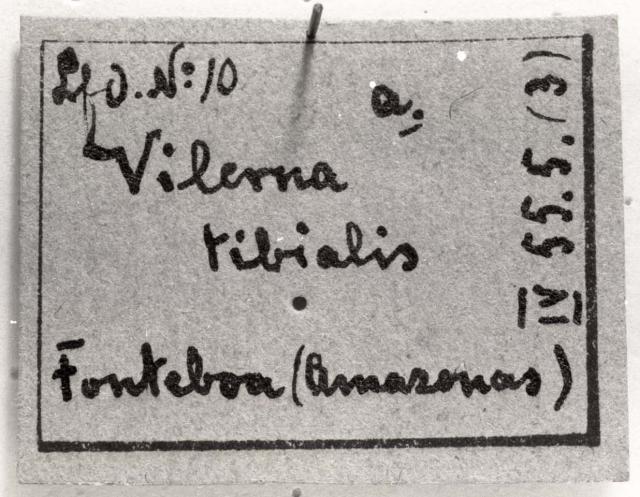 Lfd. Nº: 10
a.
Vilerna
tibialis
Fonteboa (Amazonas)
IV 55.5. (3)